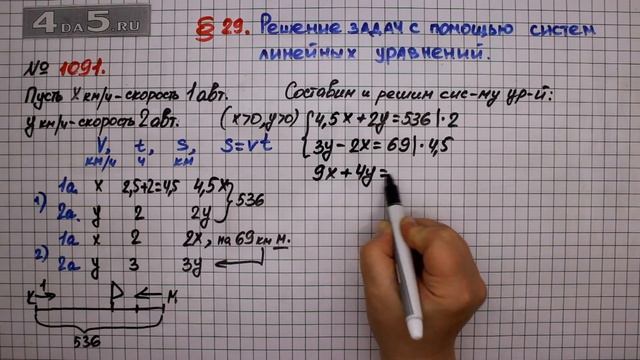 4DA5.RU
§ 29. Решение задач с помощью систем
линейных уравнений.
№ 1091.
Пусть x км/ч - скорость 1 авт.
y км/ч - скорость 2 авт. (x>0, y>0)
V, t, S, S=vt
км/ч ч км
1) 1а x 2,5+2=4,5 4,5x
2а. y 2 2y } 536
2) 1а x 2 2x, на 69 км м.
2а y 3 3y
К 1 М
536
Составим и решим сис-му ур-й:
{ 4,5x + 2y = 536 | · 2
3y - 2x = 69 | · 4,5
9x + 4y =